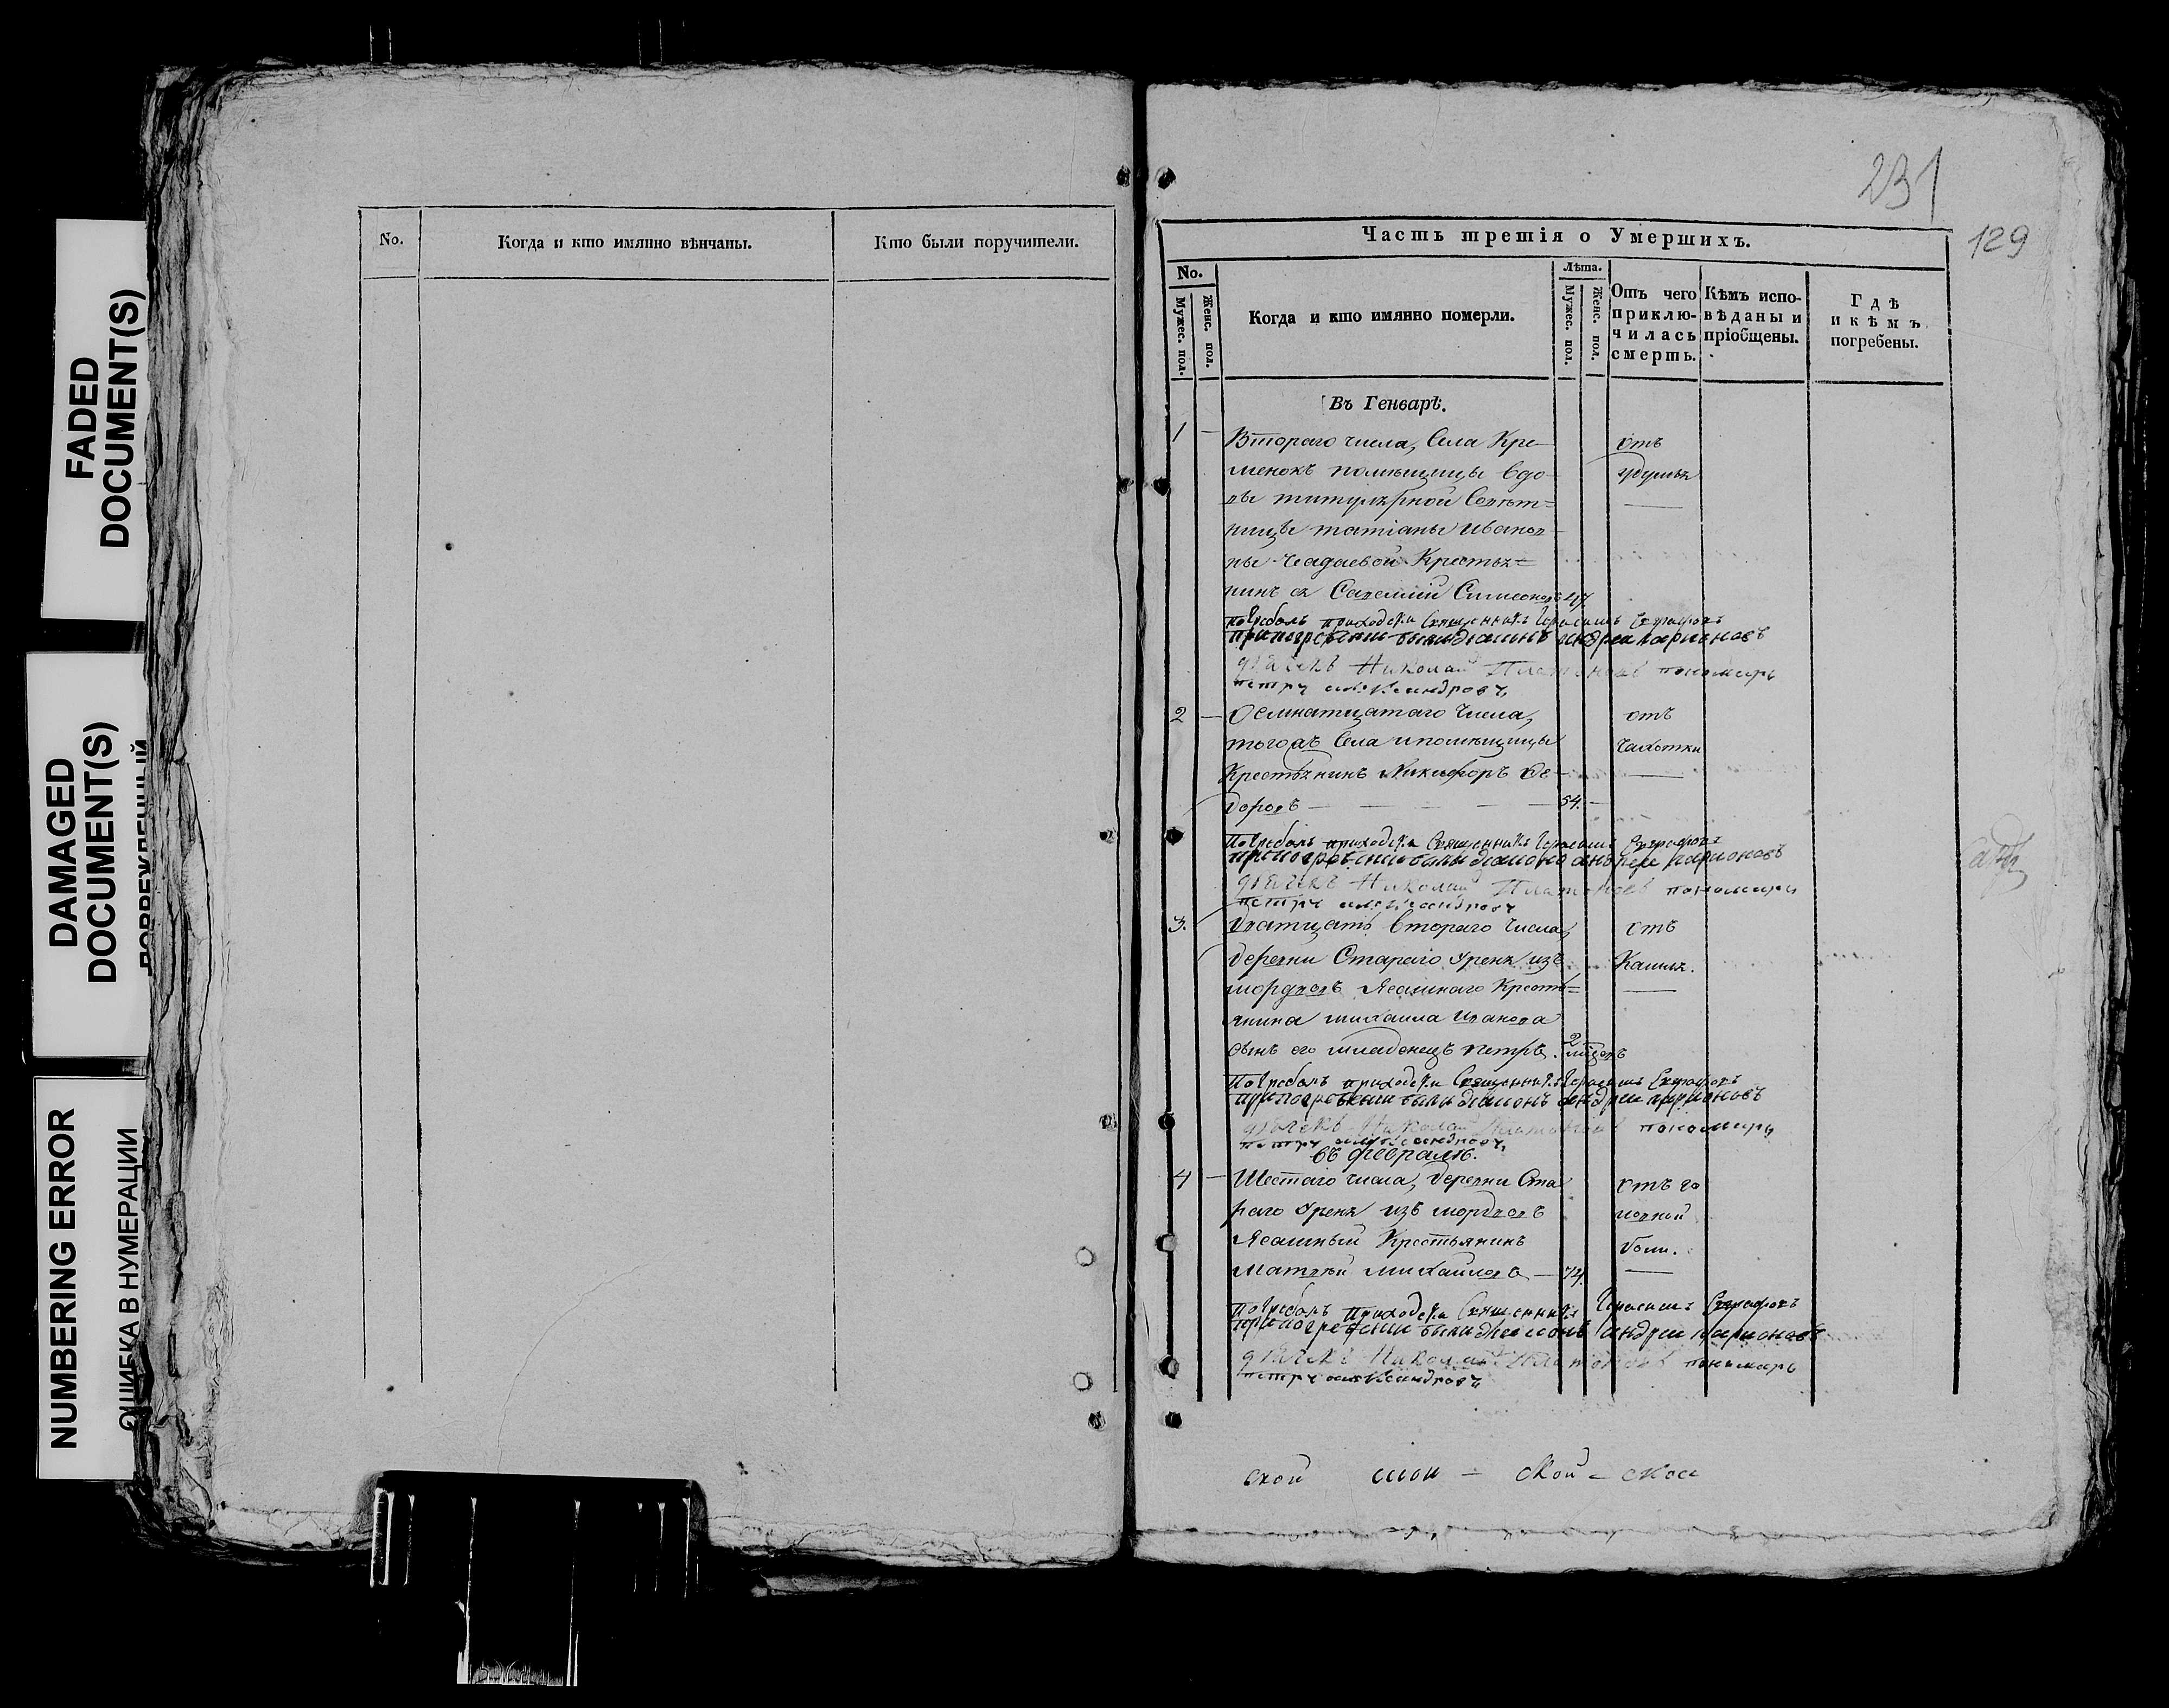 FADED
DOCUMENT(S)
DAMAGED
DOCUMENT(S)
ПОВРЕЖДЕННЫЙ
NUMBERING ERROR
ОШИБКА В НУМЕРАЦИИ
No.
Когда и кто имянно вѣнчаны.
Кто были поручители.
231
129
Часть третія о Умершихъ.
No.
Мужес. пол.
Женс. пол.
Когда и кто имянно померли.
Лѣта.
Мужес. пол.
Женс. пол.
Отъ чего
приклю-
чилась
смерть.
Кѣмъ испо-
вѣданы и
пріобщены.
Гдѣ
и кѣмъ
погребены.
Въ Генварѣ.
1 — Втораго числа, Села Кре- отъ
менокъ помѣщицы вдо- удушья
вы титулярной Совѣт=
ницы татіаны Иванов-
ны Чадаевой Крестья=
нинъ ея Савелій Симеоновъ 47
погребалъ приходскій Священникъ Герасимъ Евграфовъ
припогребеніи были діаконъ андреи ларионовъ
дьячекъ Николай Платоновъ пономарь
петръ александровъ
2 — Осмнатцатаго Числа, отъ
тогожъ Села и помѣщицы Чахотки
Крестьянинъ Никифоръ Ѳе-
доровъ — 54. —
погребалъ приходскій Священникъ Герасимъ Евграфовъ
припогребеніи были діаконъ андреи ларионовъ
дьячекъ Николай Платоновъ пономарь
петръ александровъ
3. Дватцать втораго Числа, отъ
деревни Стараго Уреня изъ Кашля.
мордвовъ Ясашнаго Кресть=
янина михаила Иванова
сынъ его младенецъ петръ. 2 мѣсяцовъ
погребалъ приходскій Священникъ Герасимъ Евграфовъ
припогребеніи были діаконъ андреи ларионовъ
дьячекъ Николай Платоновъ пономарь
петръ александровъ
въ февралѣ.
4 — Шестаго числа, деревни Ста отъ го
раго Уреня изъ мордвовъ ловной
Ясашный Крестьянинъ боли.
матвѣй михайловъ — 74.
погребалъ приходскій Священникъ Герасимъ Евграфовъ
припогребеніи были діаконъ андреи ларионовъ
дьячекъ Николай Платоновъ пономарь
петръ александровъ